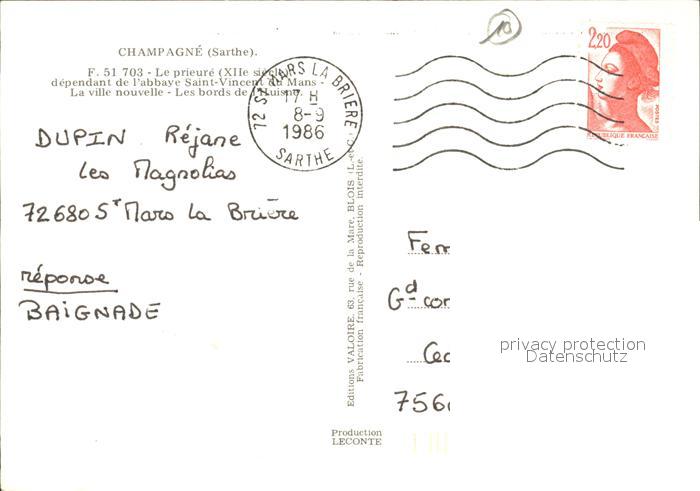 CHAMPAGNÉ (Sarthe).
F. 51 703 - Le prieuré (XIIe siècle)
dépendant de l'abbaye Saint-Vincent du Mans -
La ville nouvelle - Les bords de l'Huisne.
72 St MARS LA BRIERE
17 H
8-9
1986
SARTHE
10
2,20
POSTES
REPUBLIQUE FRANÇAISE
DUPIN Réjane
Les Magnolias
72680 St Mars La Brière
réponse
BAIGNADE
Editions VALOIRE, 63, rue de la Mare, BLOIS (L.-et-C.)
Fabrication française - Reproduction interdite.
Gd
756
privacy protection
Datenschutz
Production
LECONTE